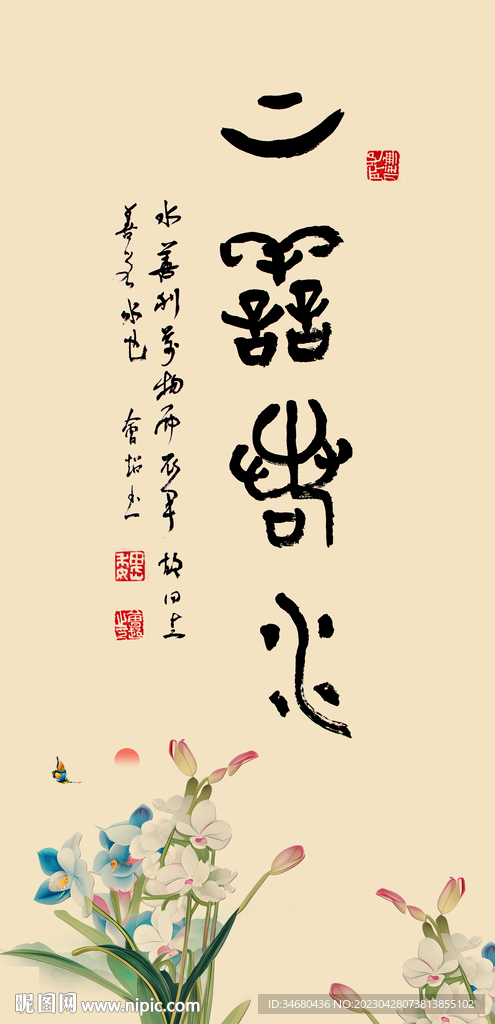 上善若水
水善利萬物而不争故曰上
善若水也
昵图网 www.nipic.com
ID:34680436 NO:20230428073813855102